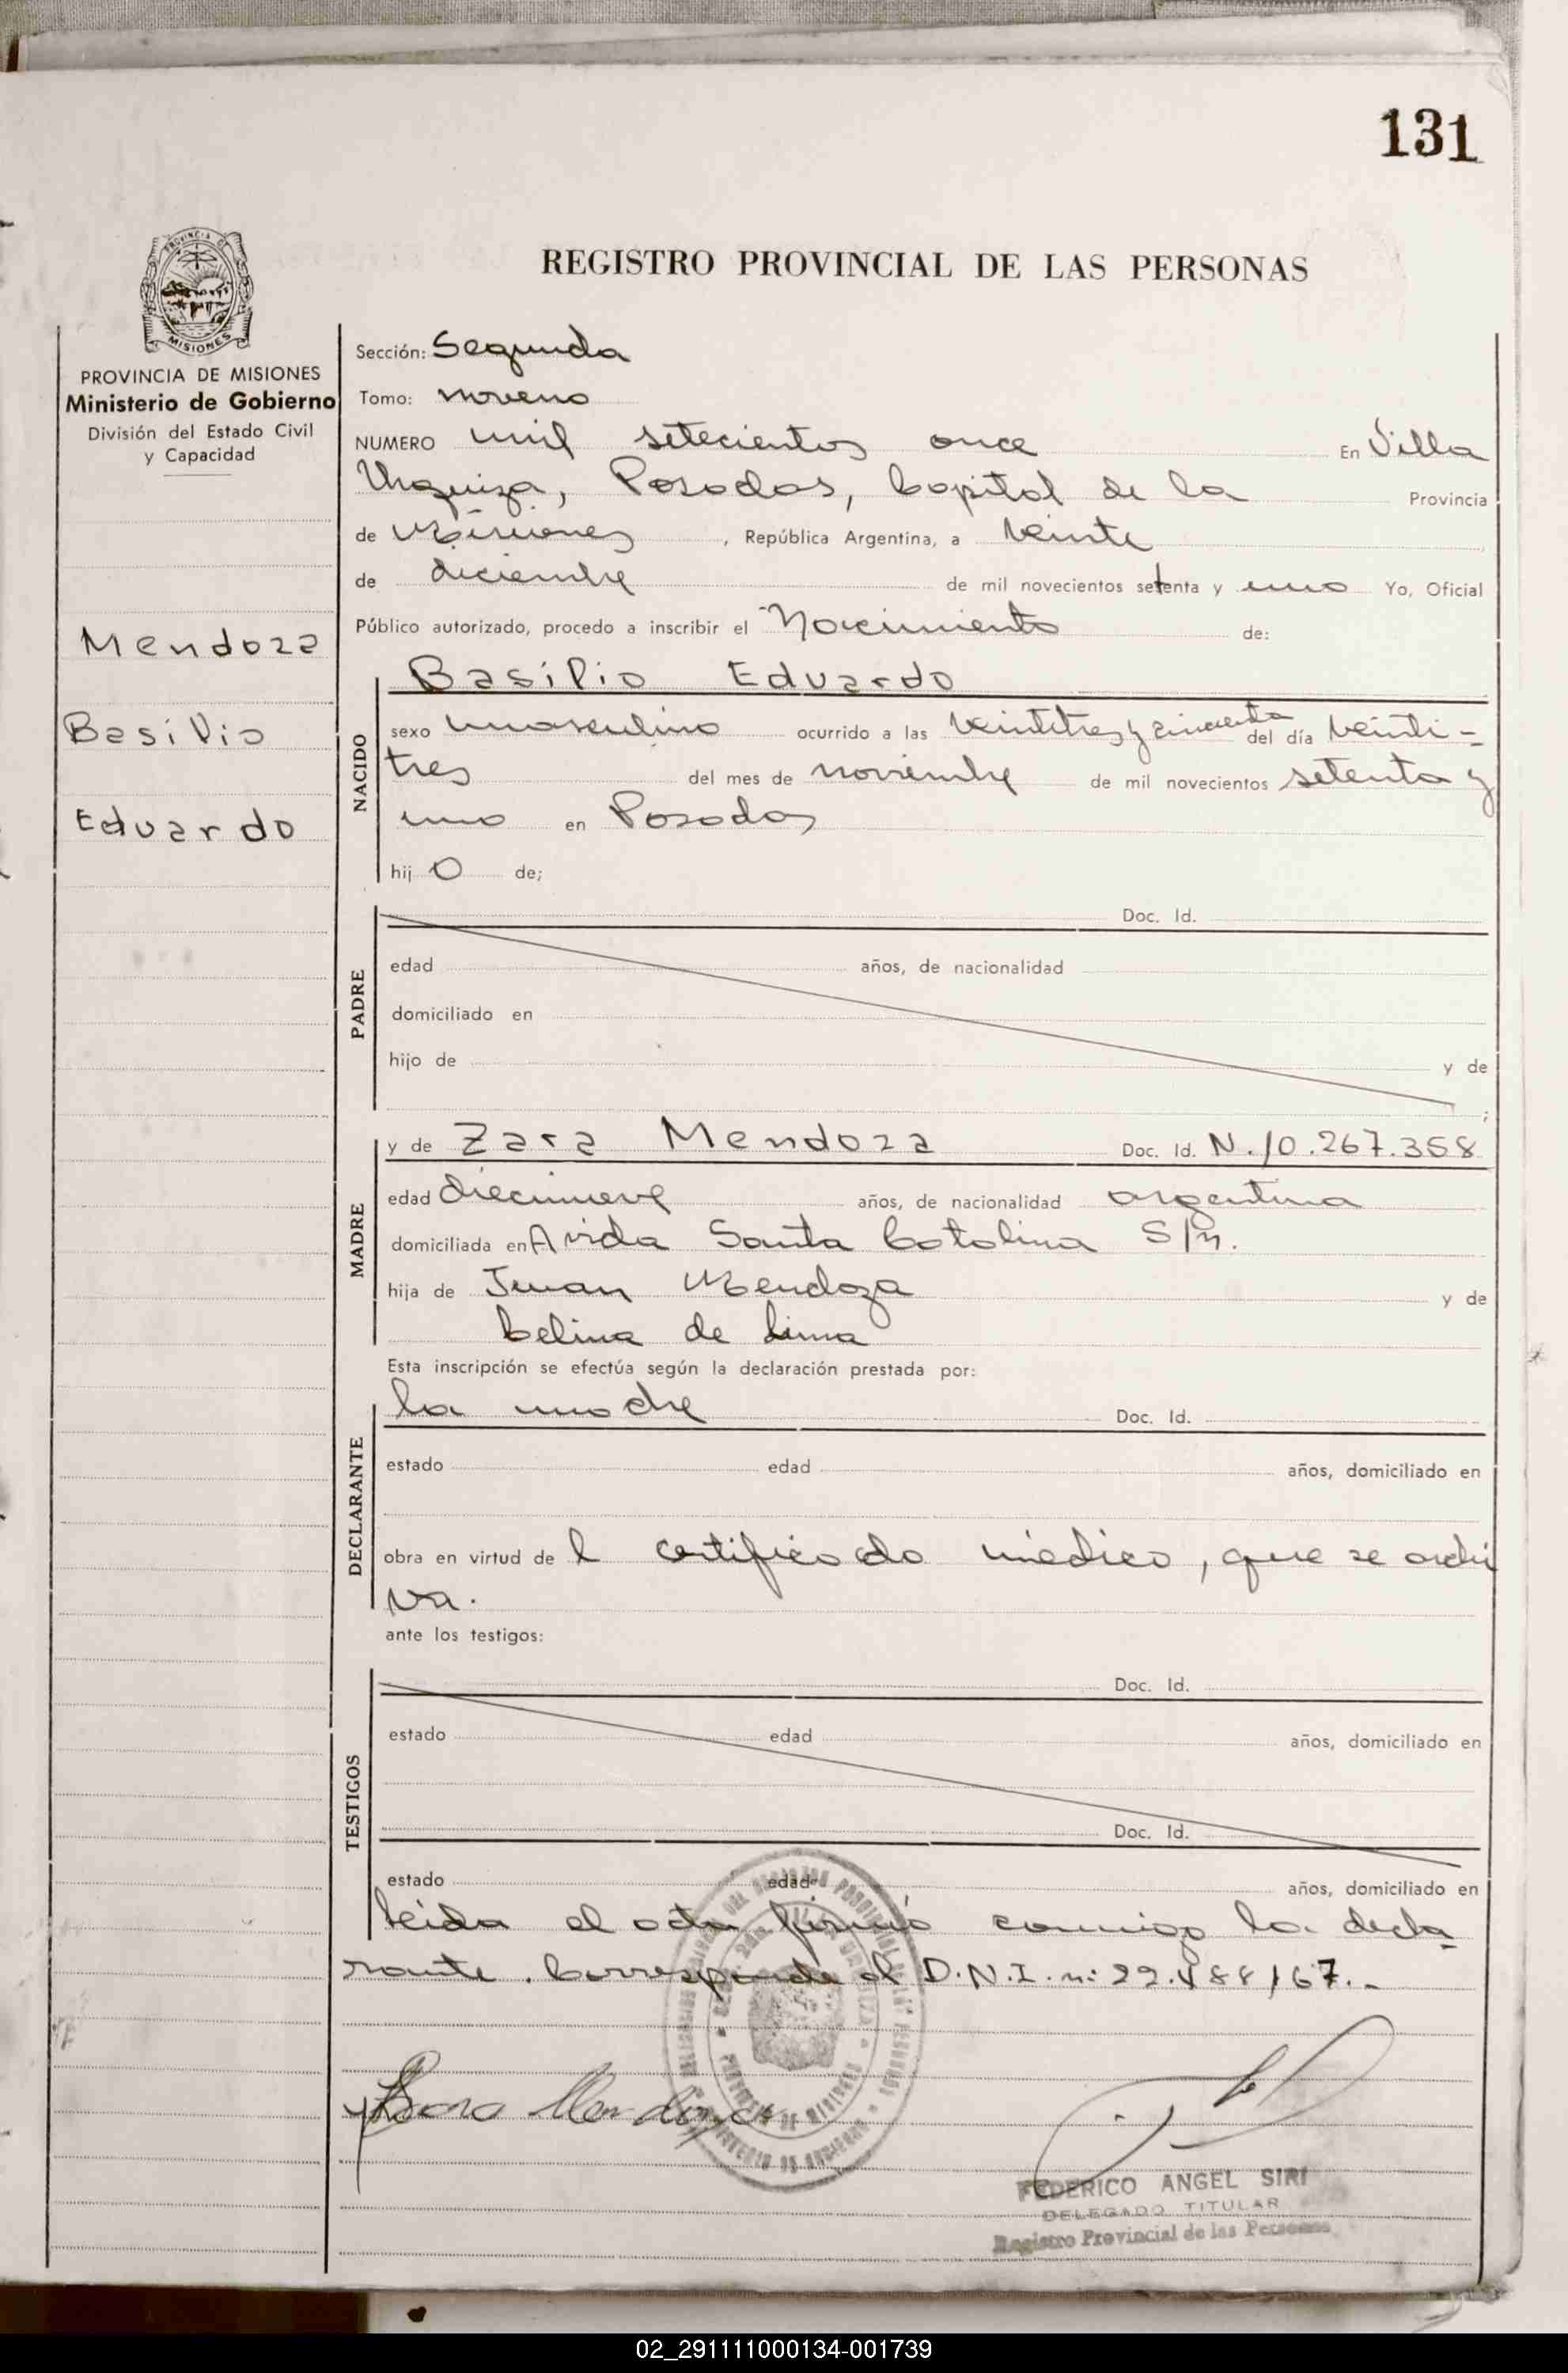 131
REGISTRO PROVINCIAL DE LAS PERSONAS
PROVINCIA DE MISIONES
Ministerio de Gobierno
División del Estado Civil
y Capacidad
Mendoza
Basilio
Eduardo
Sección: Segunda
Tomo: noveno
NUMERO mil setecientos once En Villa
Urquiza, Posadas, Capital de la Provincia
de Misiones, República Argentina, a veinte
de diciembre de mil novecientos setenta y uno Yo, Oficial
Público autorizado, procedo a inscribir el Nacimiento de:
Basilio Eduardo
NACIDO
sexo masculino ocurrido a las veintitres y cincuenta del día veinti-
tres del mes de noviembre de mil novecientos setenta y
uno en Posadas
hijo de;
PADRE
Doc. Id.
edad años, de nacionalidad
domiciliado en
hijo de y de
;
MADRE
y de Zara Mendoza Doc. Id. N. 10.267.358
edad diecinueve años, de nacionalidad argentina
domiciliada en Avida Santa Catalina S/n.
hija de Juan Mendoza y de
Celina de Lima
Esta inscripción se efectúa según la declaración prestada por:
DECLARANTE
la madre Doc. Id.
estado edad años, domiciliado en
obra en virtud del certificado médico, que se archi
va.
ante los testigos:
TESTIGOS
Doc. Id.
estado edad años, domiciliado en
Doc. Id.
estado edad años, domiciliado en
Leida el acta firmó conmigo la decla
rante. Corresponde al D.N.I. n: 22.488167.-
Mendoza
FEDERICO ANGEL SIRI
DELEGADO TITULAR
Registro Provincial de las Personas
02_291111000134-001739